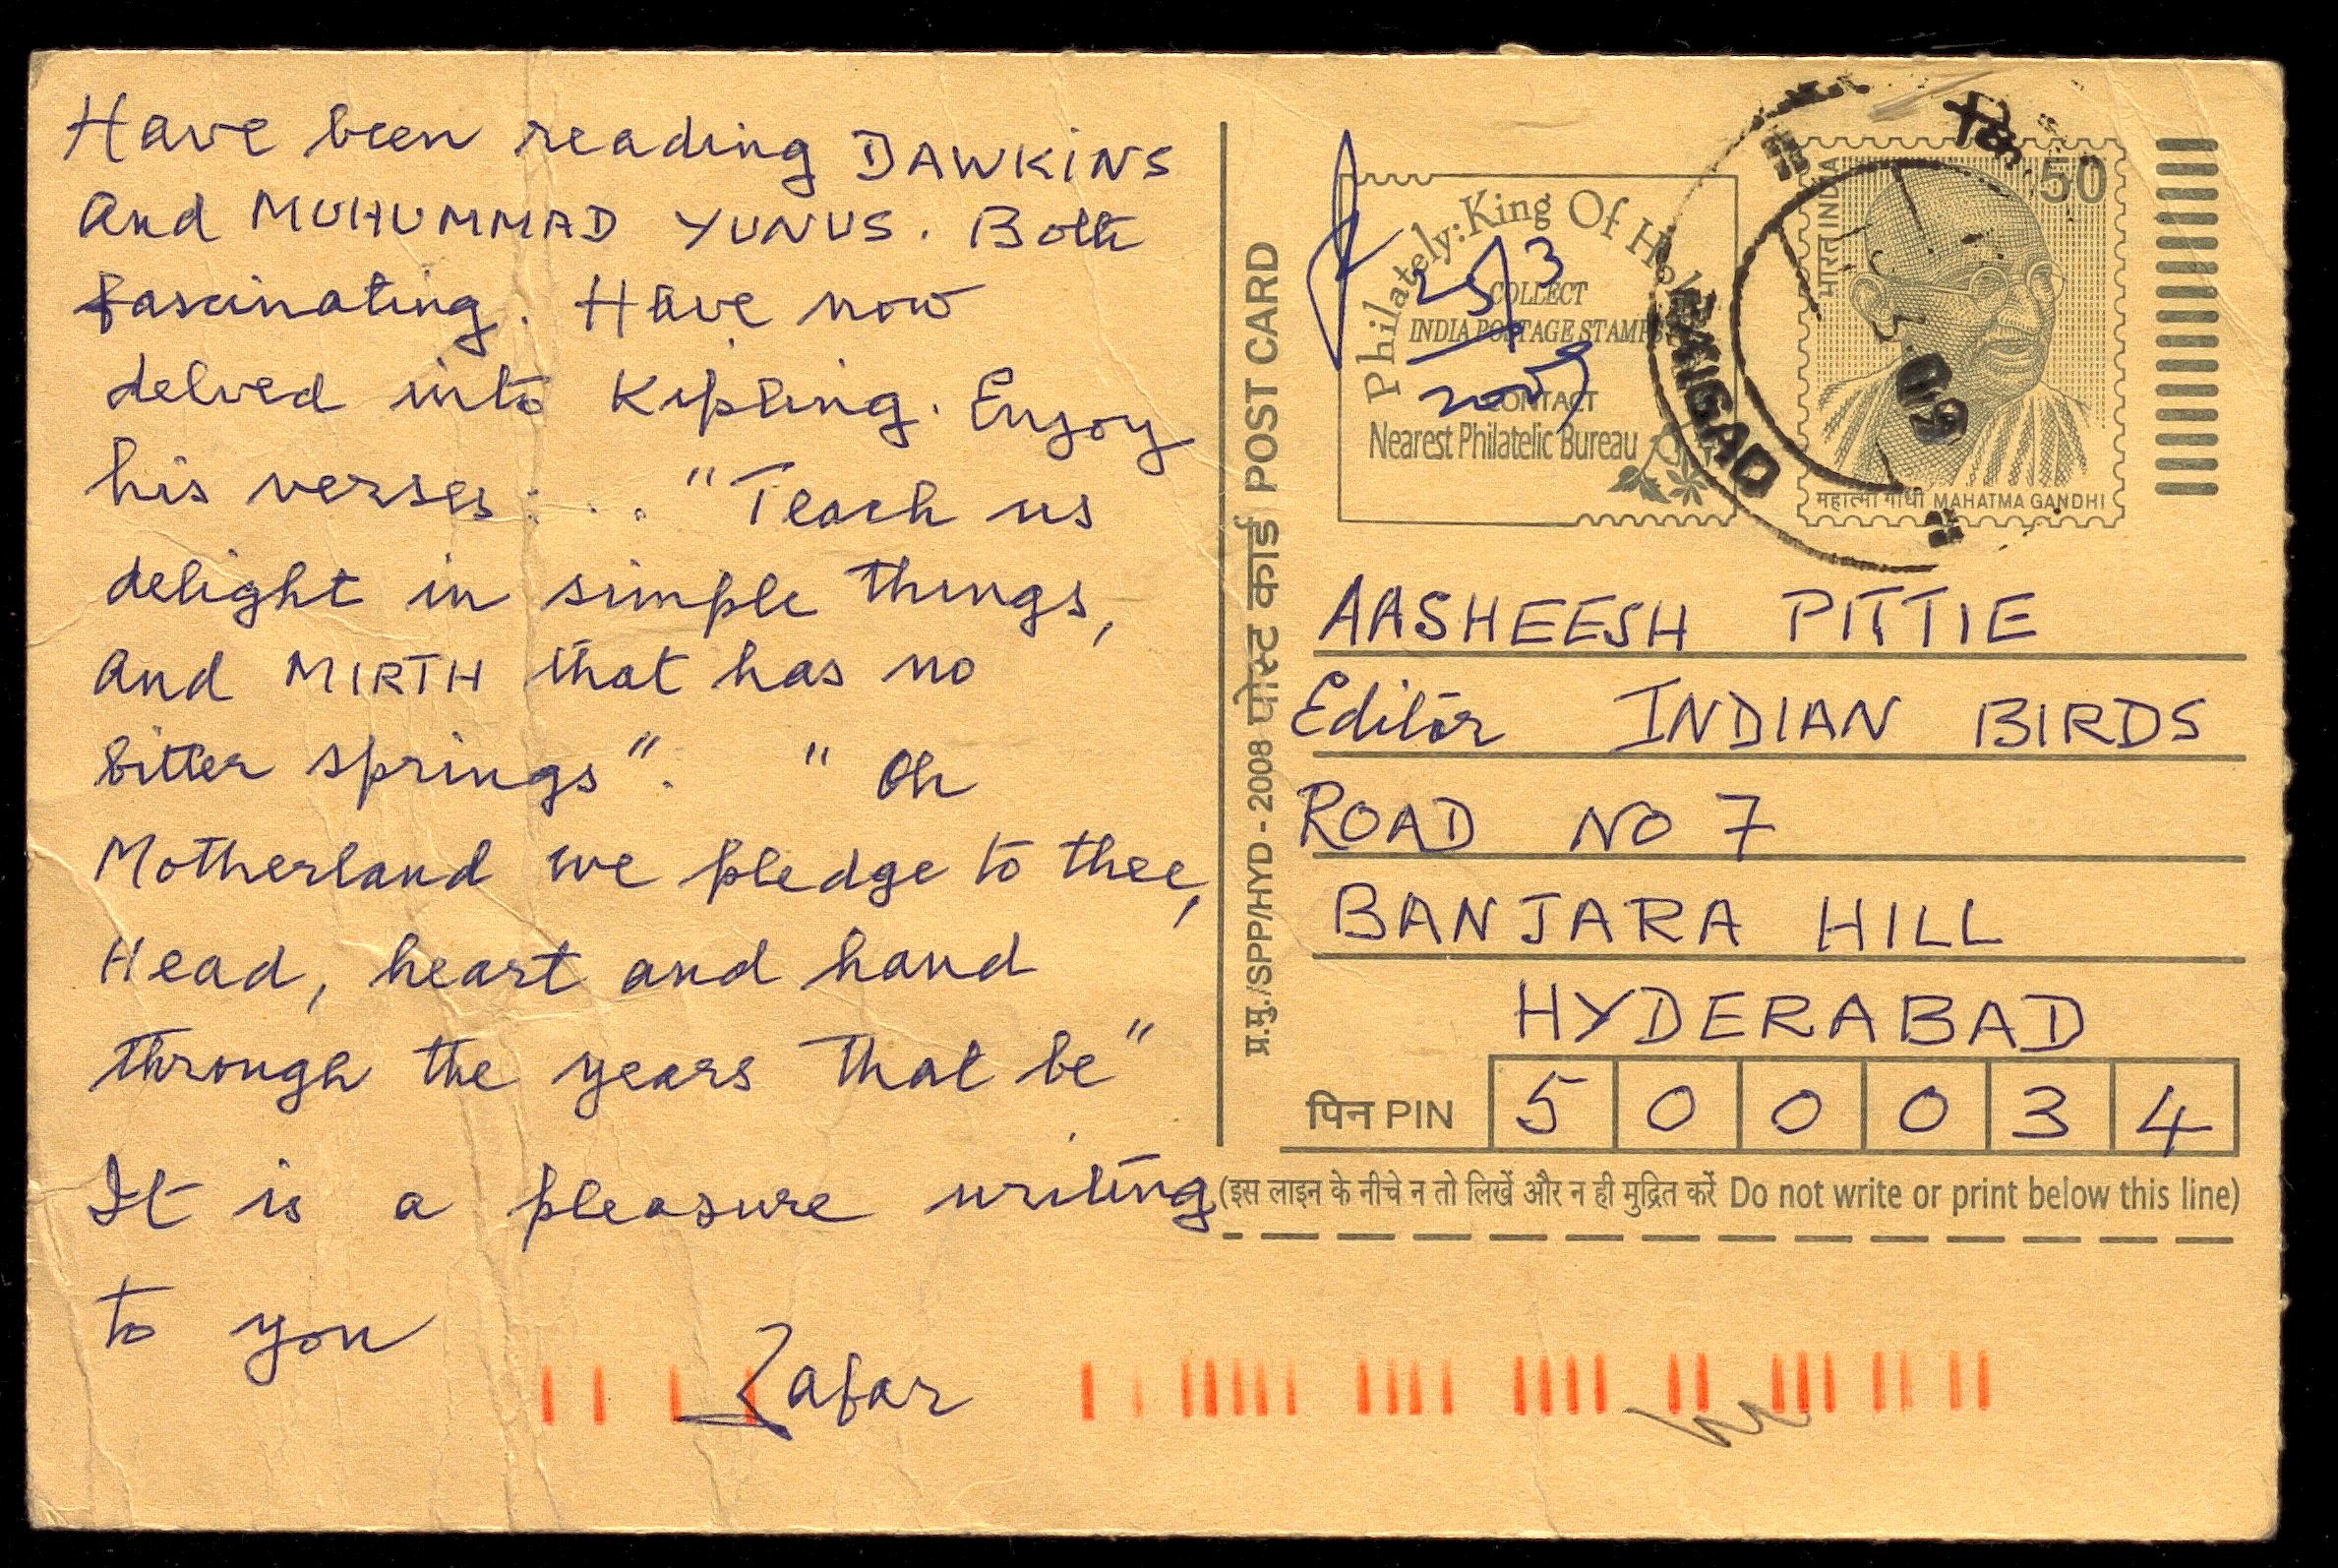 Have been reading DAWKINS
and MUHUMMAD YUNUS. Both
fascinating. Have now
delved into Kipling. Enjoy
his verses : . . "Teach us
delight in simple things,
and MIRTH that has no
bitter springs". " Oh
Motherland we pledge to thee,
Head, heart and hand
through the years that be"
It is a pleasure writing
to you
Zafar
प्र.मु./SPP/HYD - 2008 पोस्ट कार्ड POST CARD
Philately: King Of Hobbies
COLLECT
INDIA POSTAGE STAMPS
CONTACT
Nearest Philatelic Bureau
25/3
2009
RAIGAD
09
भारत INDIA
50
महात्मा गांधी MAHATMA GANDHI
AASHEESH PITTIE
Editor INDIAN BIRDS
ROAD NO 7
BANJARA HILL
HYDERABAD
पिन PIN 5 0 0 0 3 4
(इस लाइन के नीचे न तो लिखें और न ही मुद्रित करें Do not write or print below this line)